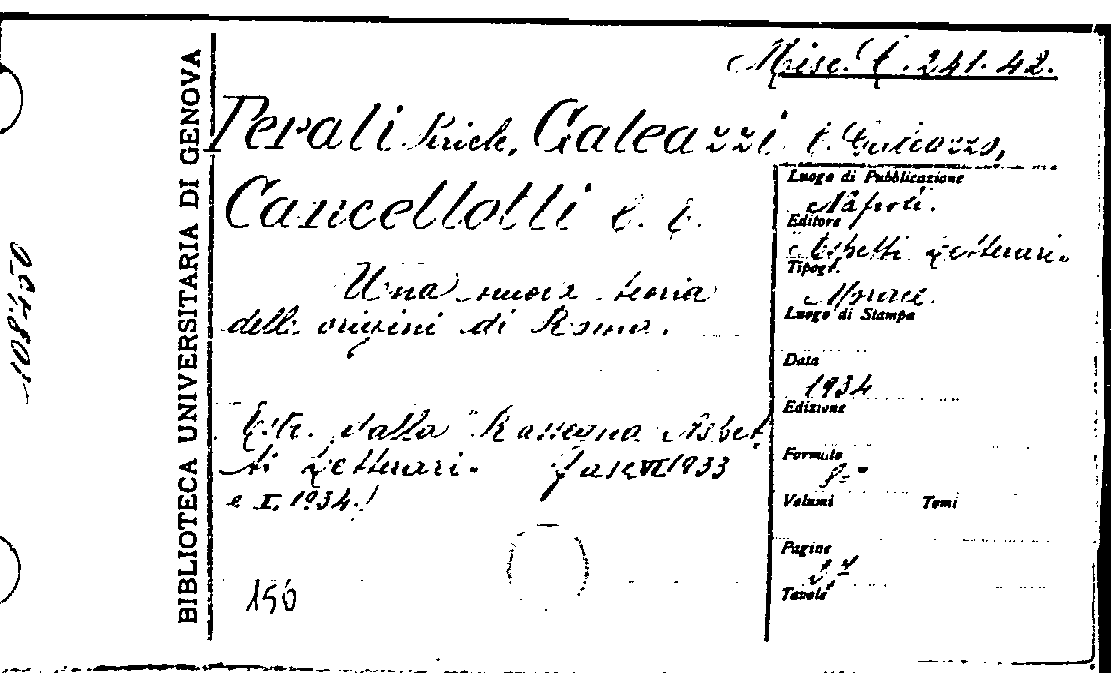 Misc. C. 241. 42.
Perali Galeazzi Galeazzo,
Cancellotti
Una nuova teoria
delle origini di Roma.
Estr. dalla "Rassegna Aspet
ti Letterari. Fasc VI 1933
e X. 1934.
156
BIBLIOTECA UNIVERSITARIA DI GENOVA
Luogo di Pubblicazione
Napoli.
Editore
Aspetti Letterari.
Tipogr.
Morace.
Luogo di Stampa
Data
1934
Edizione
Formato
8-°
Volumi Tomi
Pagine
Tavole